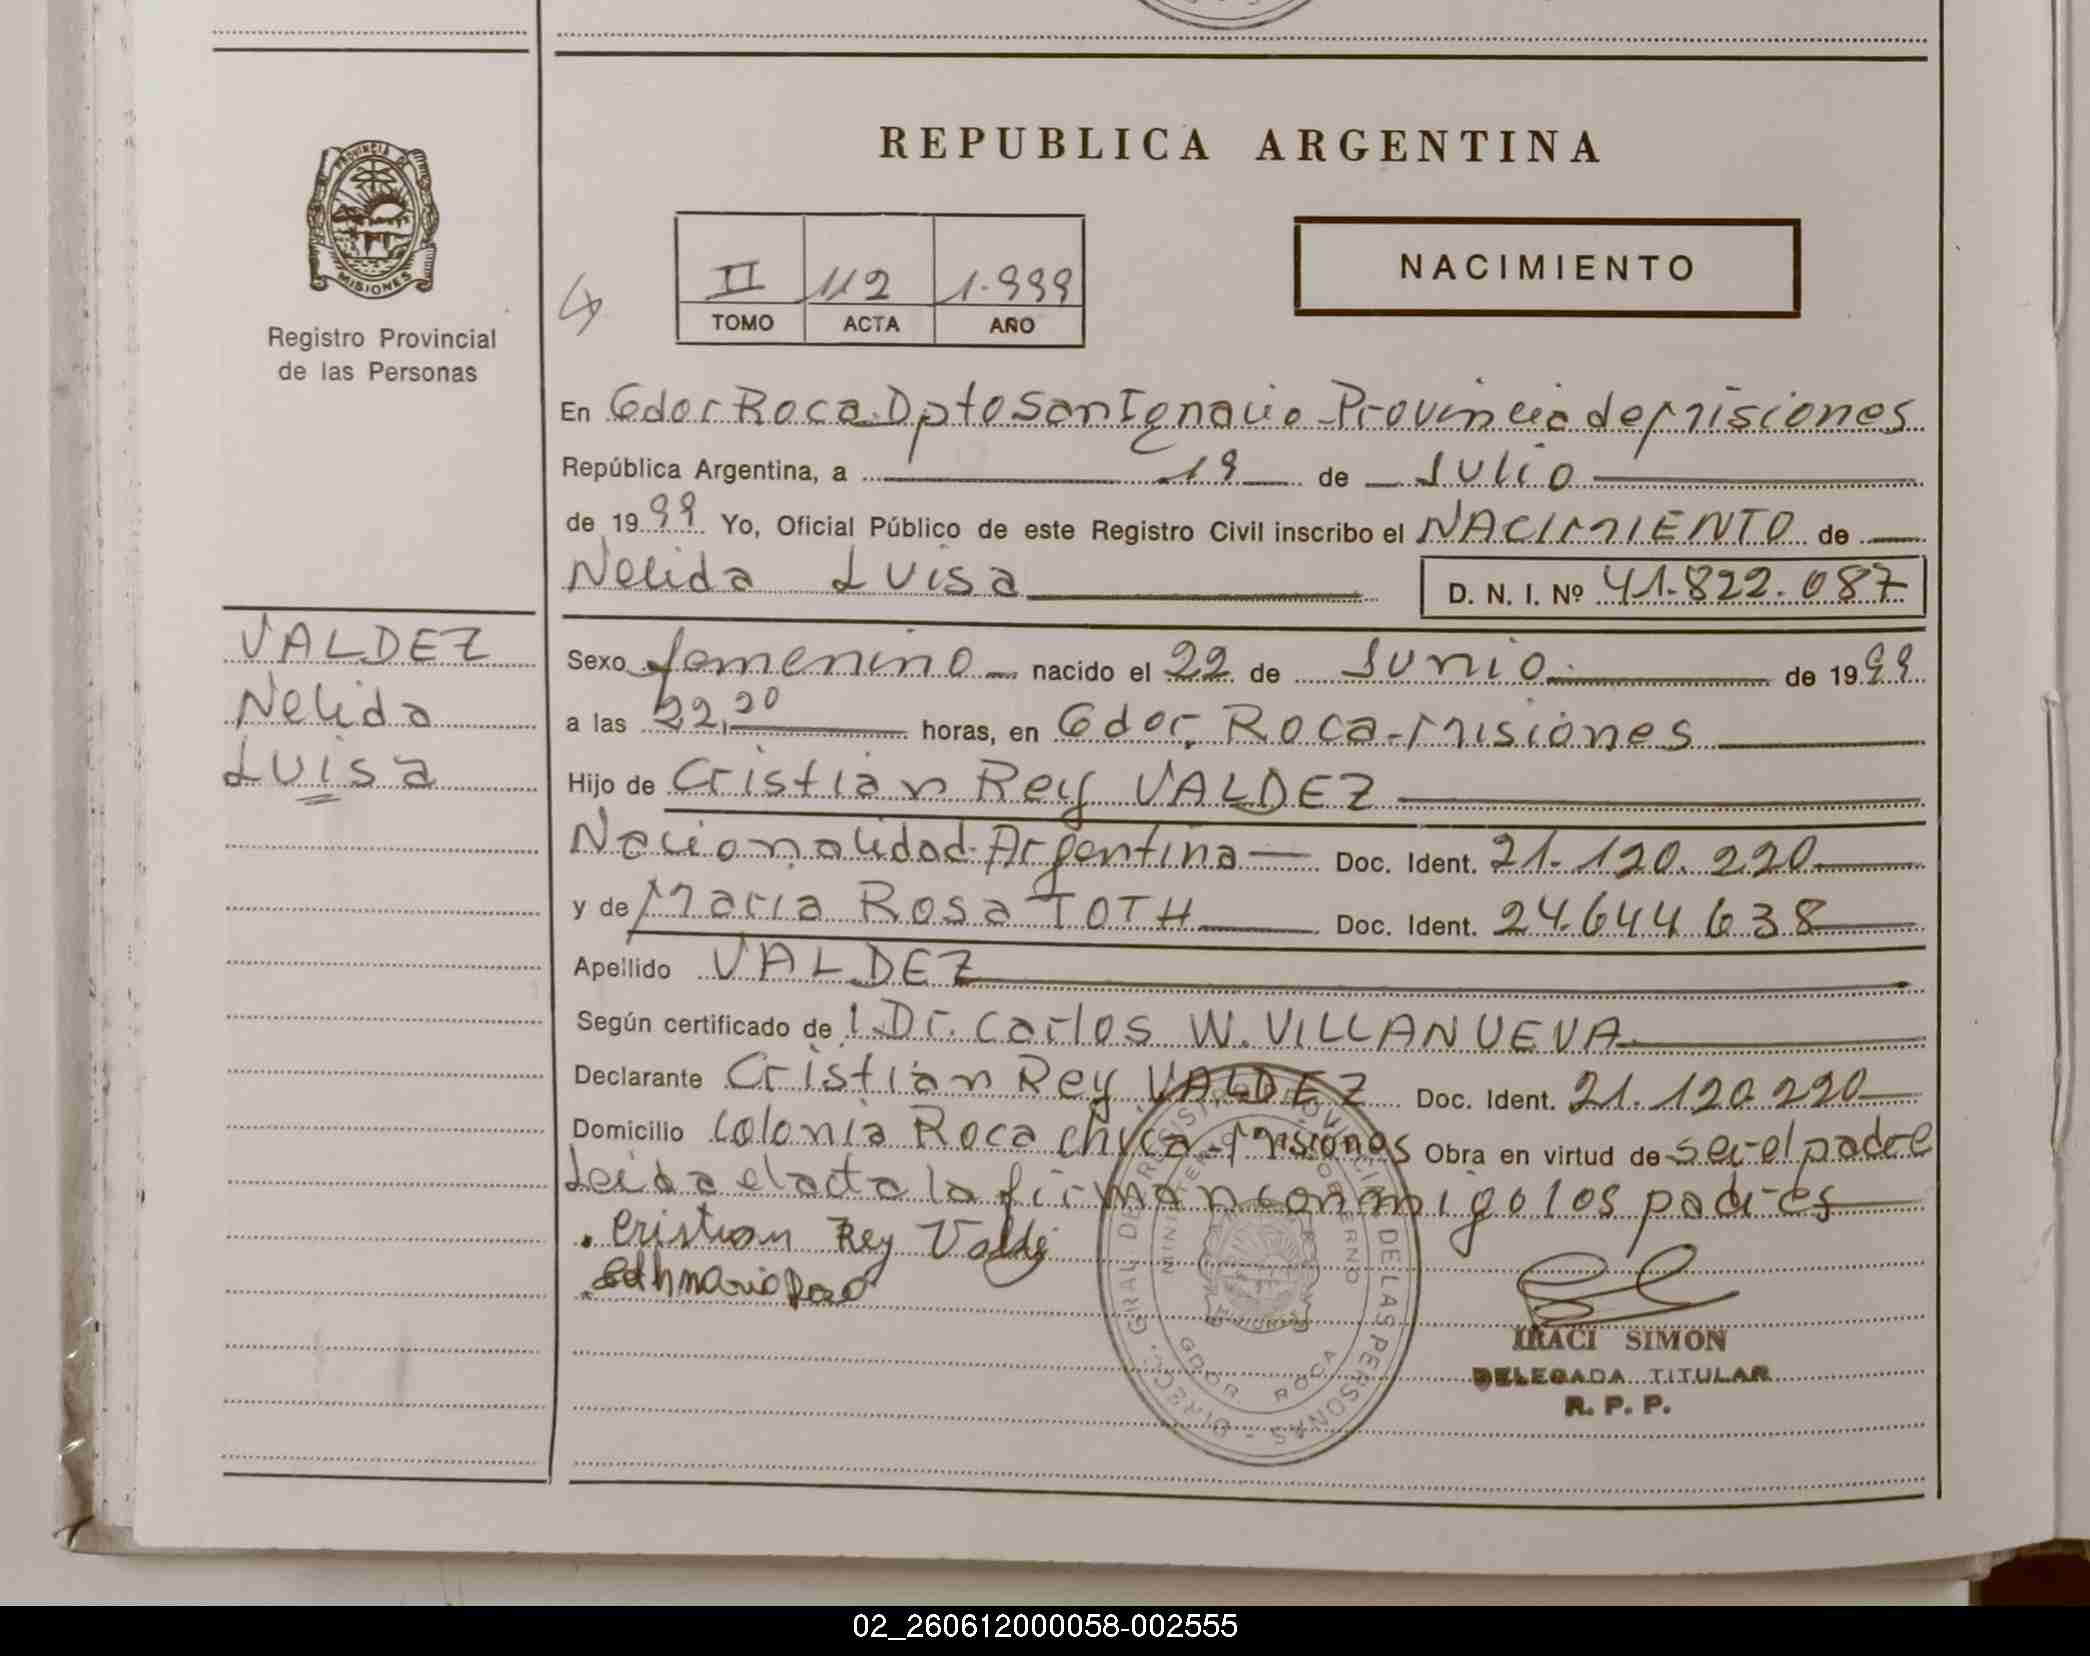 REPUBLICA ARGENTINA
PROVINCIA DE MISIONES
Registro Provincial
de las Personas
II 112 1.999
TOMO ACTA AÑO
NACIMIENTO
En Gdor Roca. Dpto San Ignacio - Provincia de Misiones
República Argentina, a 19 de Julio
de 1999 Yo, Oficial Público de este Registro Civil inscribo el NACIMIENTO de
Nelida Luisa D. N. I. Nº 41.822.087
VALDEZ
Nelida
Luisa
Sexo femenino nacido el 22 de Junio de 1999
a las 22,20 horas, en Gdor. Roca - Misiones
Hijo de Cristian Rey VALDEZ
Nacionalidad Argentina Doc. Ident. 21.120.220
y de Maria Rosa TOTH Doc. Ident. 24.644.638
Apellido VALDEZ
Según certificado de Dr. Carlos W. VILLANUEVA
Declarante Cristian Rey VALDEZ Doc. Ident. 21.120.220
Domicilio Colonia Roca chica - Misiones Obra en virtud de ser el padre
Leida el acta la firman conmigo los padres
Cristian Rey Valdez
DIREC. GRAL. DE REGISTRO PROVINCIAL DE LAS PERSONAS
MINISTERIO DE GOBIERNO
GDOR ROCA
IRACI SIMON
DELEGADA TITULAR
R. P. P.
02_260612000058-002555